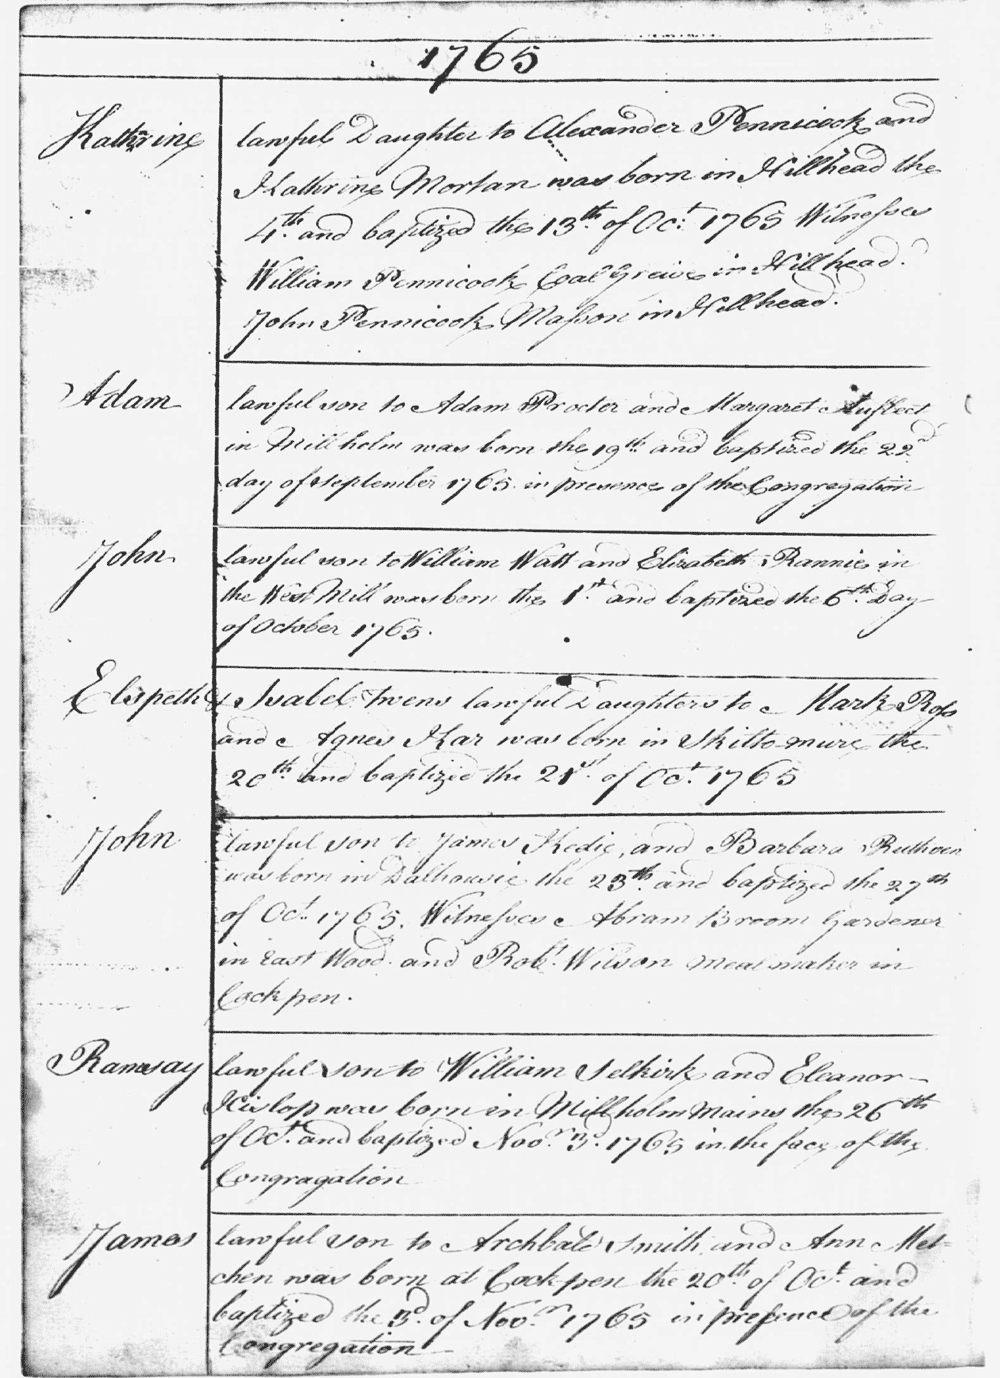 1765
Kathrine lawful Daughter to Alexander Pennicook and
Kathrine Mortan was born in Hillhead the
4th. and baptized the 13th. of Oct. 1765 Witnesses
William Pennicook Coal Greive in Hillhead.
John Pennicook Masson in Hillhead.
Adam lawful son to Adam Procter and Margaret
in Millholm was born the 19th. and baptized the 22nd
day of September 1765 in presence of the Congregation
John lawful son to William Watt and Elizabeth Rannie in
the West Mill was born the 1st and baptized the 6th. Day
of October 1765.
Elispeth & Isabel Twens lawful Daughters to Mark Ross
and Agnes Kar was born in Skiltomuire the
20th and baptized the 21st. of Oct. 1765
John lawful son to James Kedie, and Barbara Ruthven
was born in Dalhousie the 23th. and baptized the 27th
of Oct. 1765. Witnesses Abram Broom Gardener
in East Wood and Robt. Wilson meal maker in
Cockpen.
Ramsay lawful son to William Selkirk and Eleanor
Hislop was born in Millholm Mains the 26th
of Oct. and baptized Novr. 3d. 1765 in the face of the
Congragation
James lawful son to Archbald Smith and Ann Mel-
chen was born at Cockpen the 20th. of Oct. and
baptized the 3d. of Novr. 1765 in presence of the
Congregation